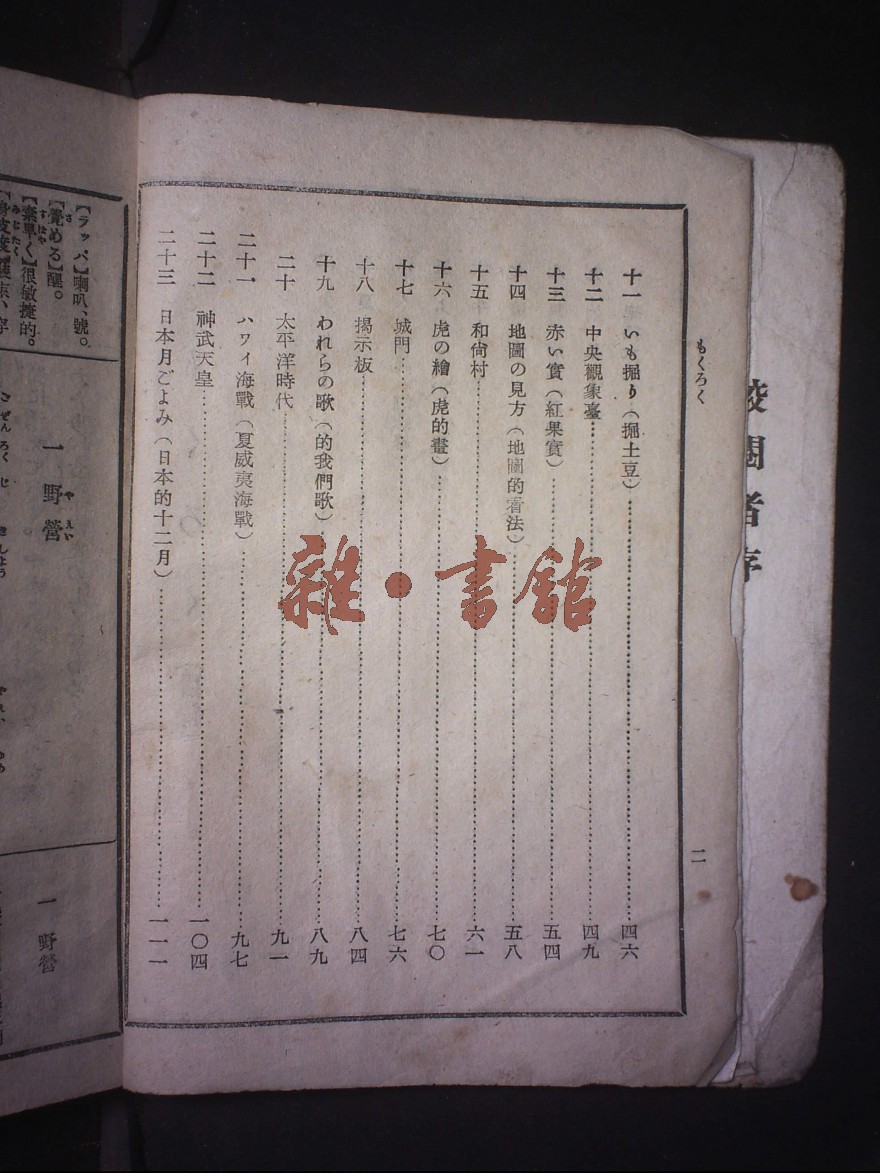 もくろく
二
十一 いも掘り(掘土豆)……四六
十二 中央觀象臺……四九
十三 赤い實(紅果實)……五四
十四 地圖の見方(地圖的看法)……五八
十五 和尙村……六一
十六 虎の繪(虎的畫)……七〇
十七 城門……七六
十八 揭示板……八四
十九 われらの歌(的我們歌)……八九
二十 太平洋時代……九一
二十一 ハワイ海戰(夏威夷海戰)……九七
二十二 神武天皇……一〇四
二十三 日本月ごよみ(日本的十二月)……一一一
雜·書館
【ラッパ】喇叭、號。
さ
【覺める】醒。
すばや
【素早く】很敏捷的。
みじたく
やえい
一 野營
ざぜんろくじ きしよう
一 野營